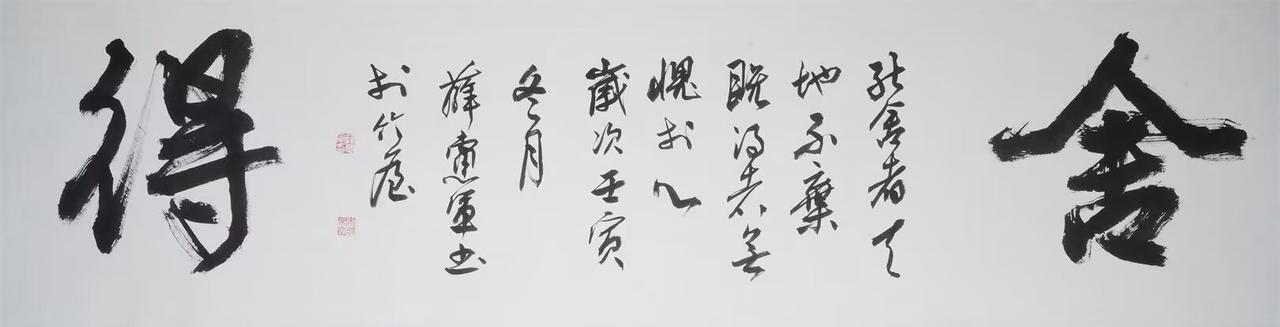 舍
能舍者天
地不棄
既得者無
愧於心
歲次壬寅
冬月
薛憲軍书
於竹
得